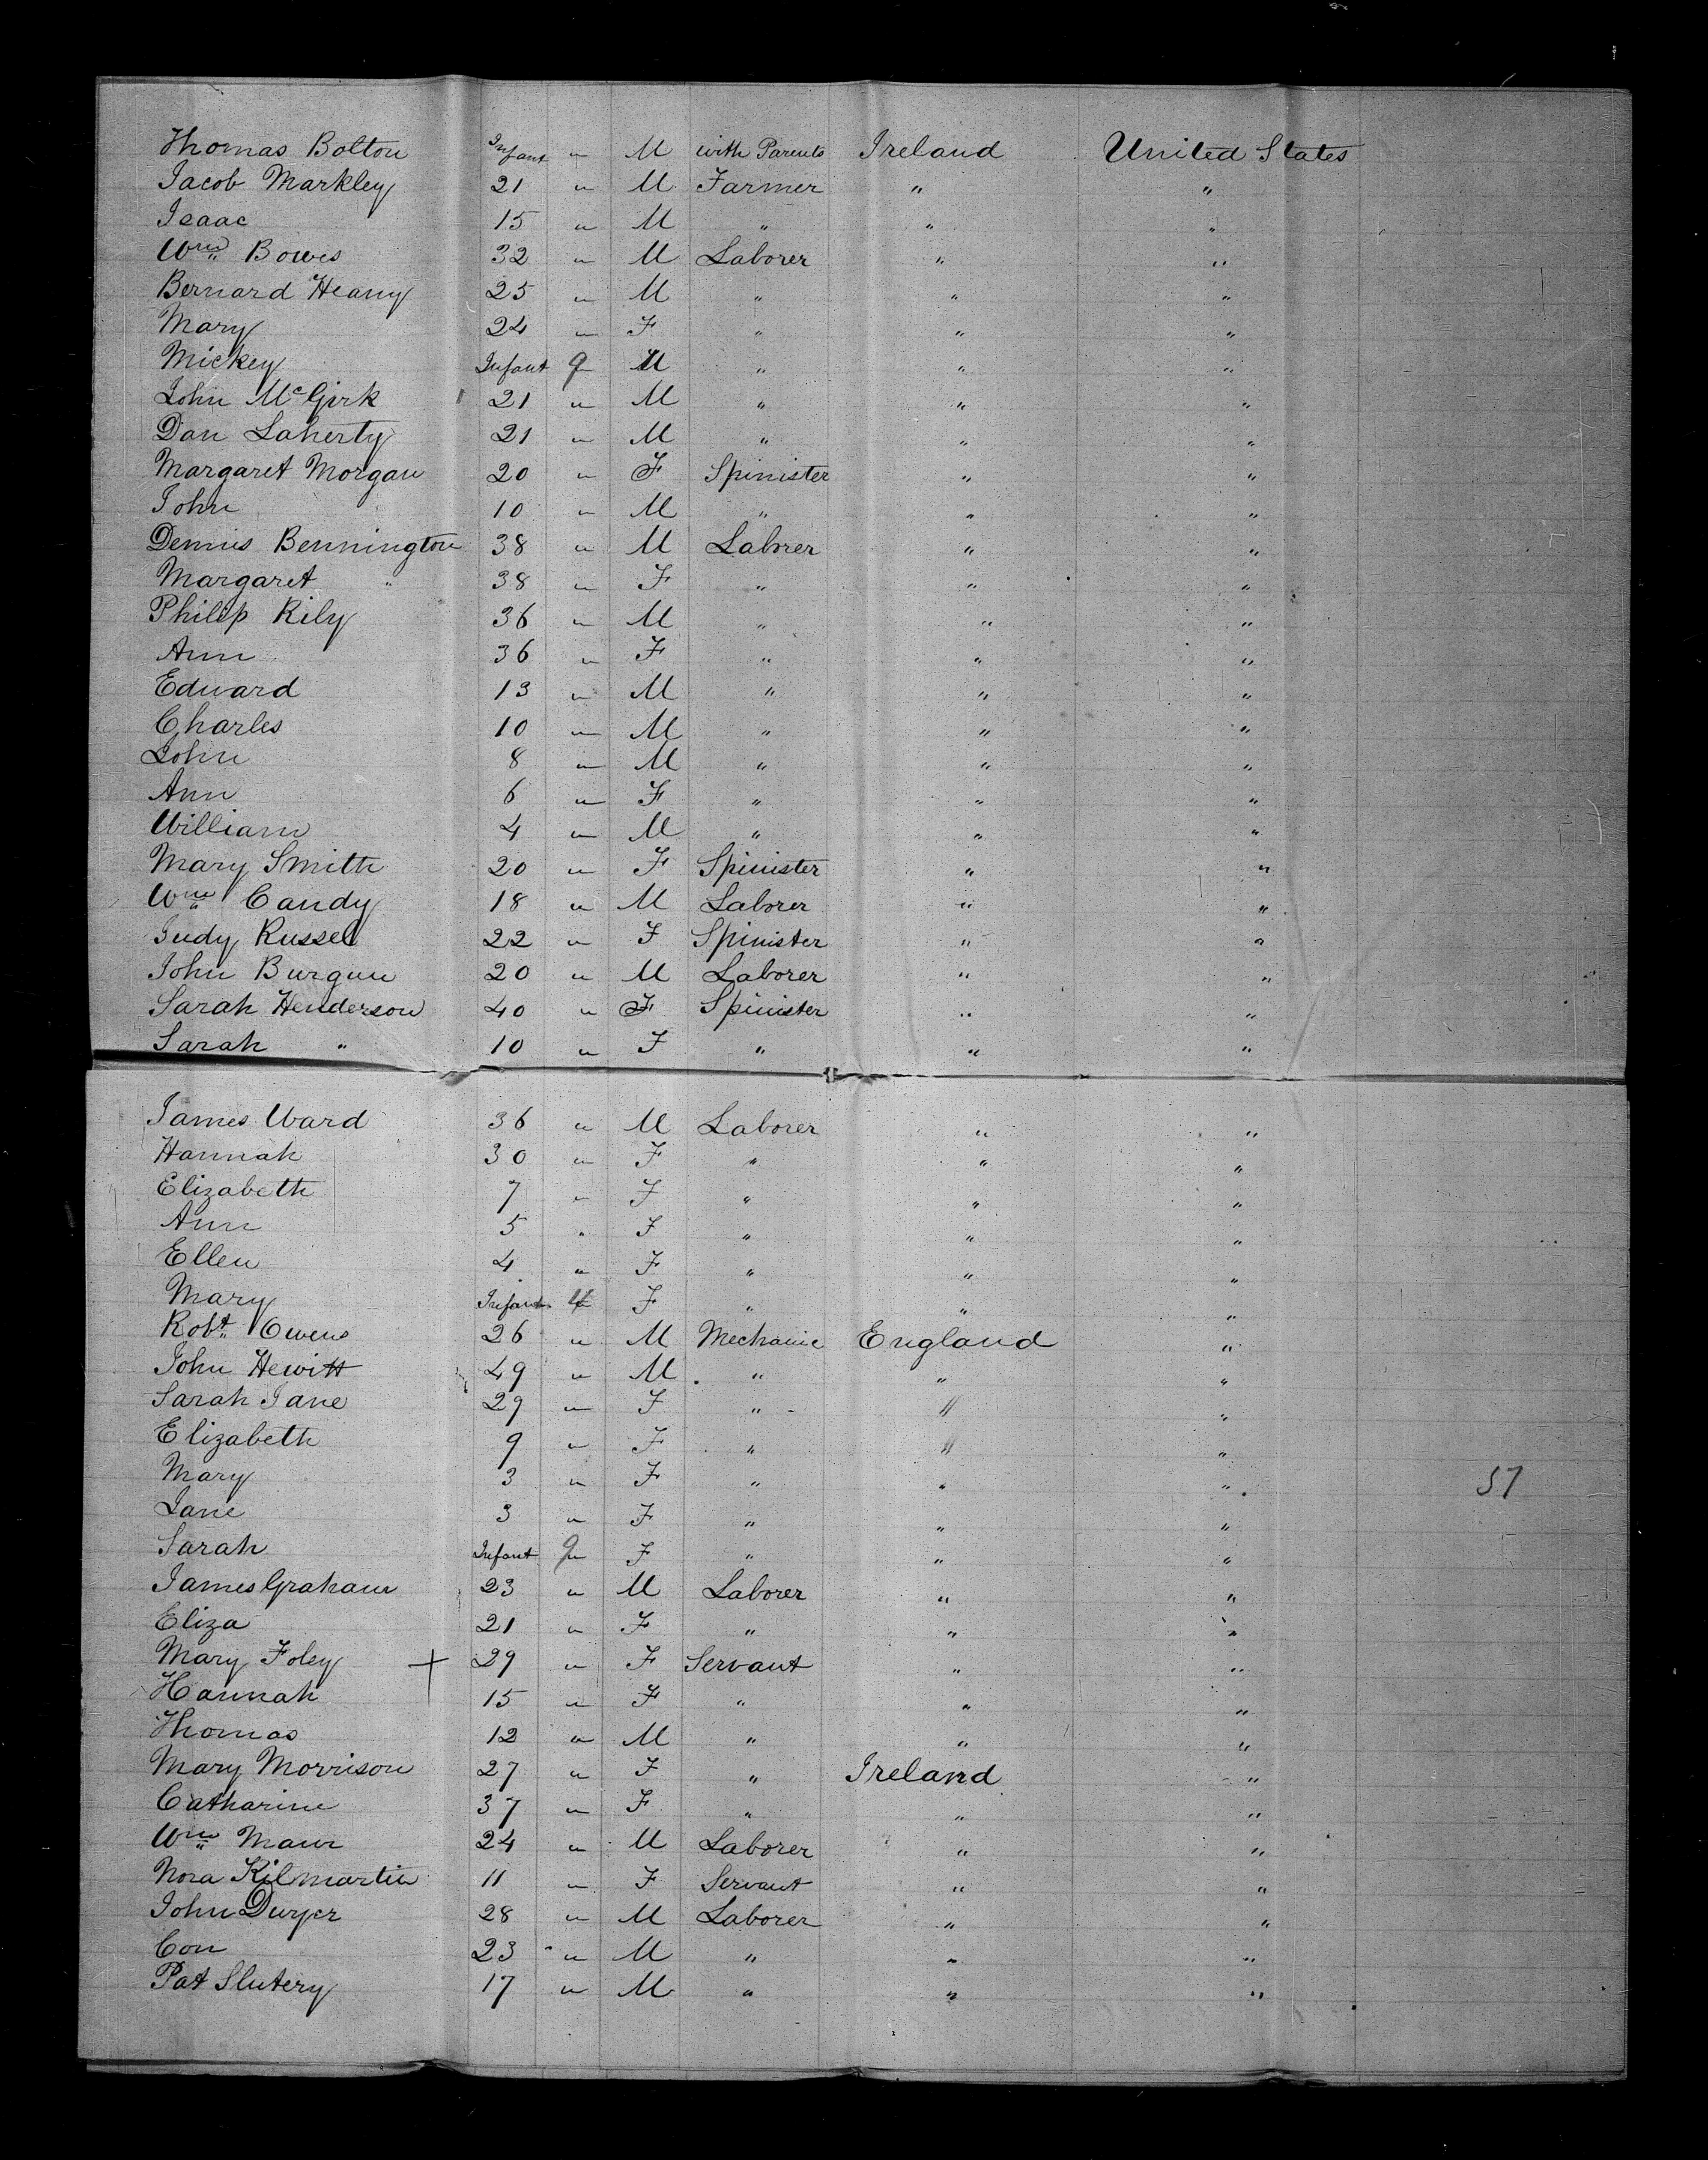 Thomas Bolton Infant " M with Parents Ireland United States
Jacob Markley 21 " M Farmer " "
Isaac 15 " M " " "
Wm Bowes 32 " M Laborer " "
Bernard Heany 25 " M " " "
Mary 24 " F " " "
Mickey Infant 9 M " " "
John McGirk 21 " M " " "
Dan Laherty 21 " M " " "
Margaret Morgan 20 " F Spinister " "
John 10 " M " " "
Dennis Bennington 38 " M Laborer " "
Margaret " 38 " F " " "
Philip Rily 36 " M " " "
Ann 36 " F " " "
Edward 13 " M " " "
Charles 10 " M " " "
John 8 " M " " "
Ann 6 " F " " "
William 4 " M " " "
Mary Smith 20 " F Spinister " "
Wm Candy 18 " M Laborer " "
Judy Russel 22 " F Spinister " "
John Burgun 20 " M Laborer " "
Sarah Henderson 40 " F Spinister " "
Sarah " 10 " F " " "
James Ward 36 " M Laborer " "
Hannah 30 " F " " "
Elizabeth 7 " F " " "
Ann 5 " F " " "
Ellen 4 " F " " "
Mary Infant 4 F " " "
Robt Owens 26 " M Mechanic England "
John Hewitt 49 " M " " "
Sarah Jane 29 " F " " "
Elizabeth 9 " F " " "
Mary 3 " F " " " 57
Jane 3 " F " " "
Sarah Infant 9 F " " "
James Graham 23 " M Laborer " "
Eliza 21 " F " " "
Mary Foley + 29 " F Servant " "
Hannah 15 " F " " "
Thomas 12 " M " " "
Mary Morrison 27 " F " Ireland "
Catharine 37 " F " " "
Wm Maur 24 " M Laborer " "
Nora Kilmartin 11 " F Servant " "
John Dwyer 28 " M Laborer " "
Con 23 " M " " "
Pat Slutery 17 " M " " "